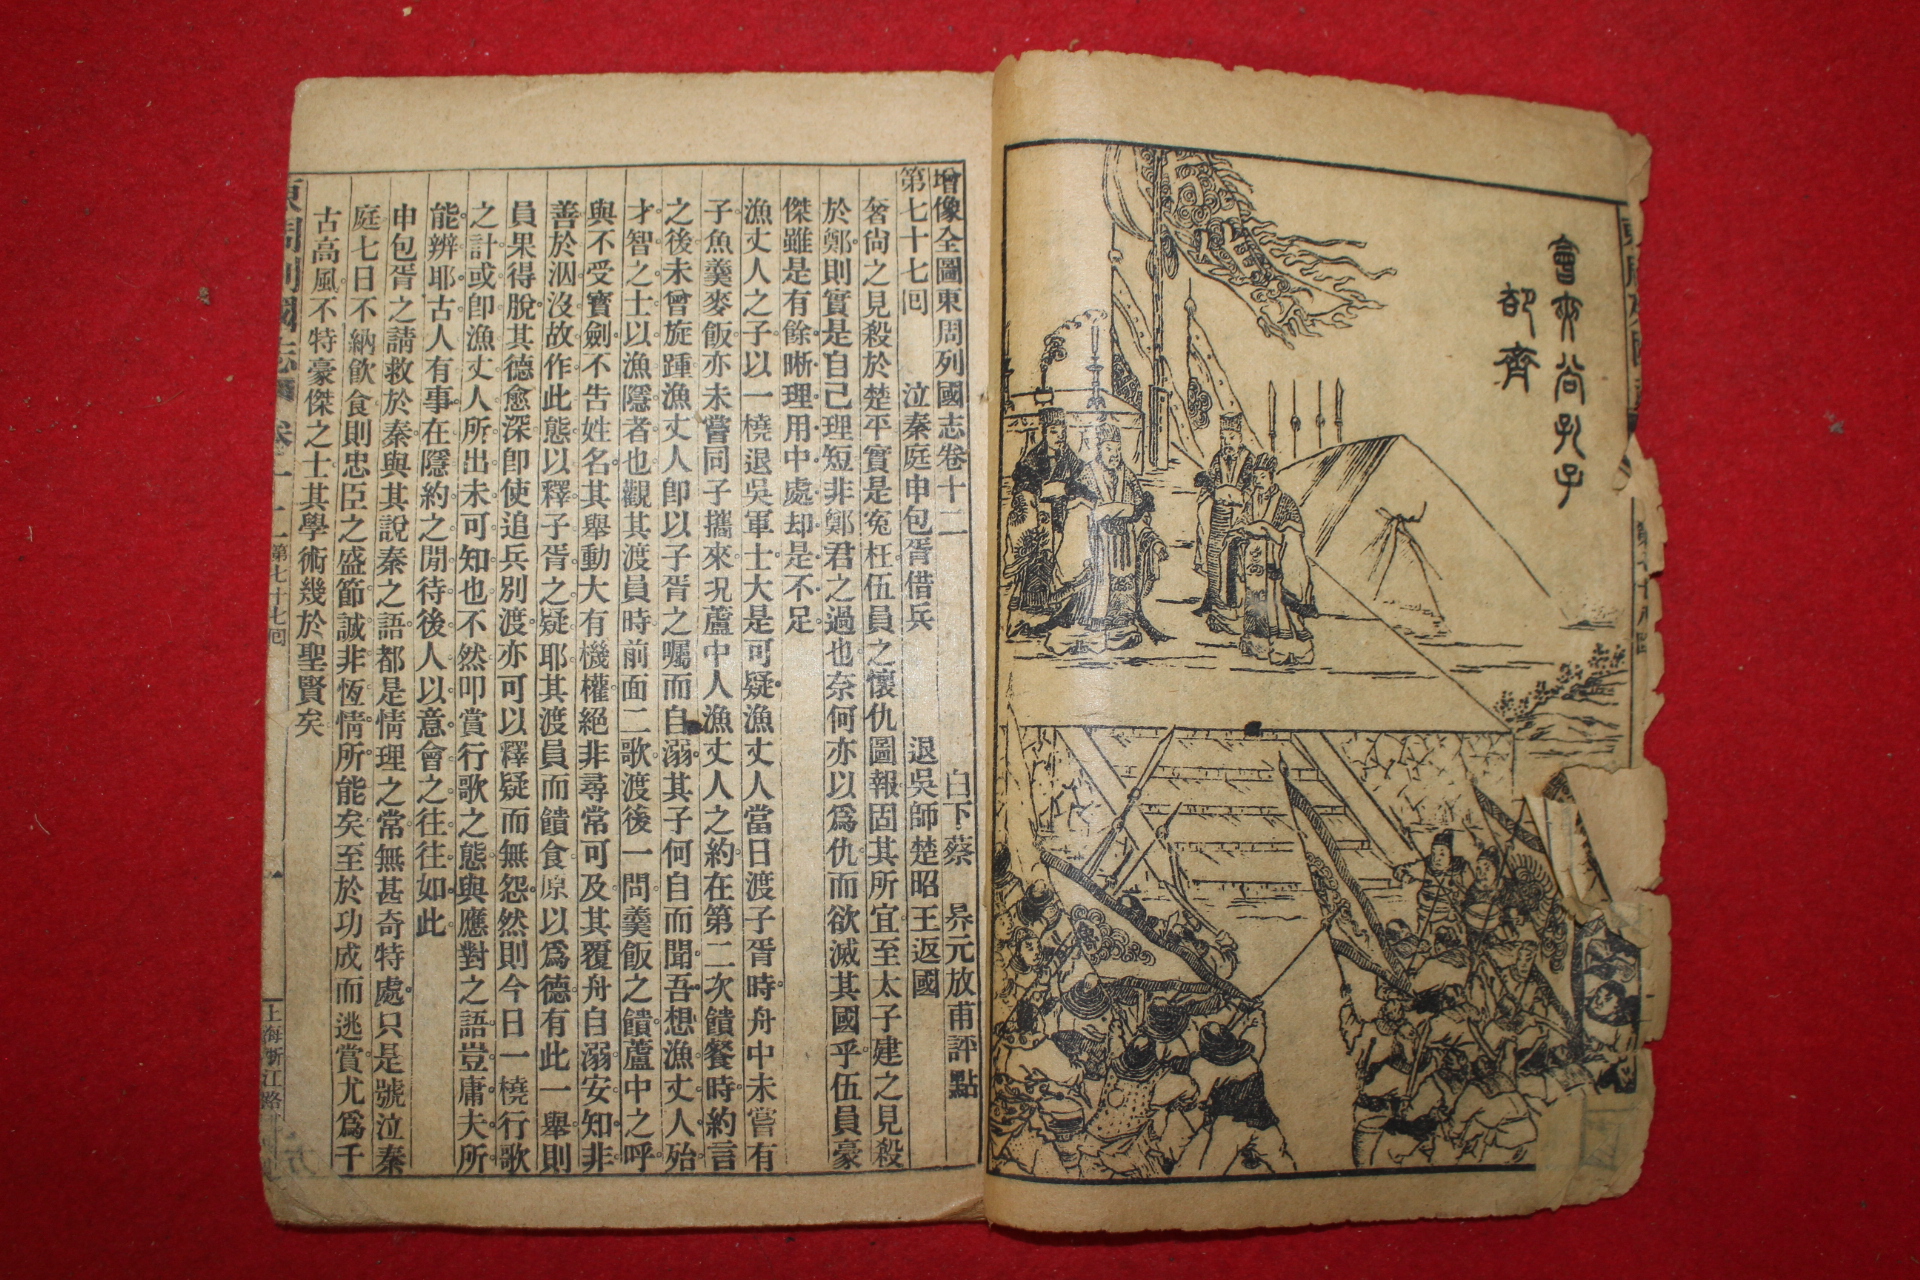 會夾谷孔子
却齊
增像全圖東周列國志卷十二 白下蔡 昦元放甫評點
第七十七回 泣秦庭申包胥借兵 退吳師楚昭王返國
奢尙之見殺於楚平實是寃枉伍員之懷仇圖報固其所宜至太子建之見殺
於鄭則實是自己理短非鄭君之過也奈何亦以爲仇而欲滅其國乎伍員豪
傑雖是有餘晣理用中處却是不足
漁丈人之子以一橈退吳軍士大是可疑漁丈人當日渡子胥時舟中未嘗有
子魚羹麥飯亦未嘗同子攜來况蘆中人漁丈人之約在第二次饋餐時約言
之後未曾旋踵漁丈人卽以子胥之囑而自溺其子何自而聞吾想漁丈人殆
才智之士以漁隱者也觀其渡員時前面二歌渡後一問羹飯之饋蘆中之呼
與不受寳劍不告姓名其舉動大有機權絕非尋常可及其覆舟自溺安知非
善於泅沒故作此態以釋子胥之疑耶其渡員而饋食原以爲德有此一舉則
員果得脫其德愈深卽使追兵別渡亦可以釋疑而無怨然則今日一橈行歌
之計或卽漁丈人所出未可知也不然叩賞行歌之態與應對之語豈庸夫所
能辨耶古人有事在隱約之閒待後人以意會之往往如此
申包胥之請救於秦與其說秦之語都是情理之常無甚奇特處只是號泣秦
庭七日不納飮食則忠臣之盛節誠非恆情所能矣至於功成而逃賞尤爲千
古高風不特豪傑之士其學術幾於聖賢矣
東周列國志 卷十二 第七十七回